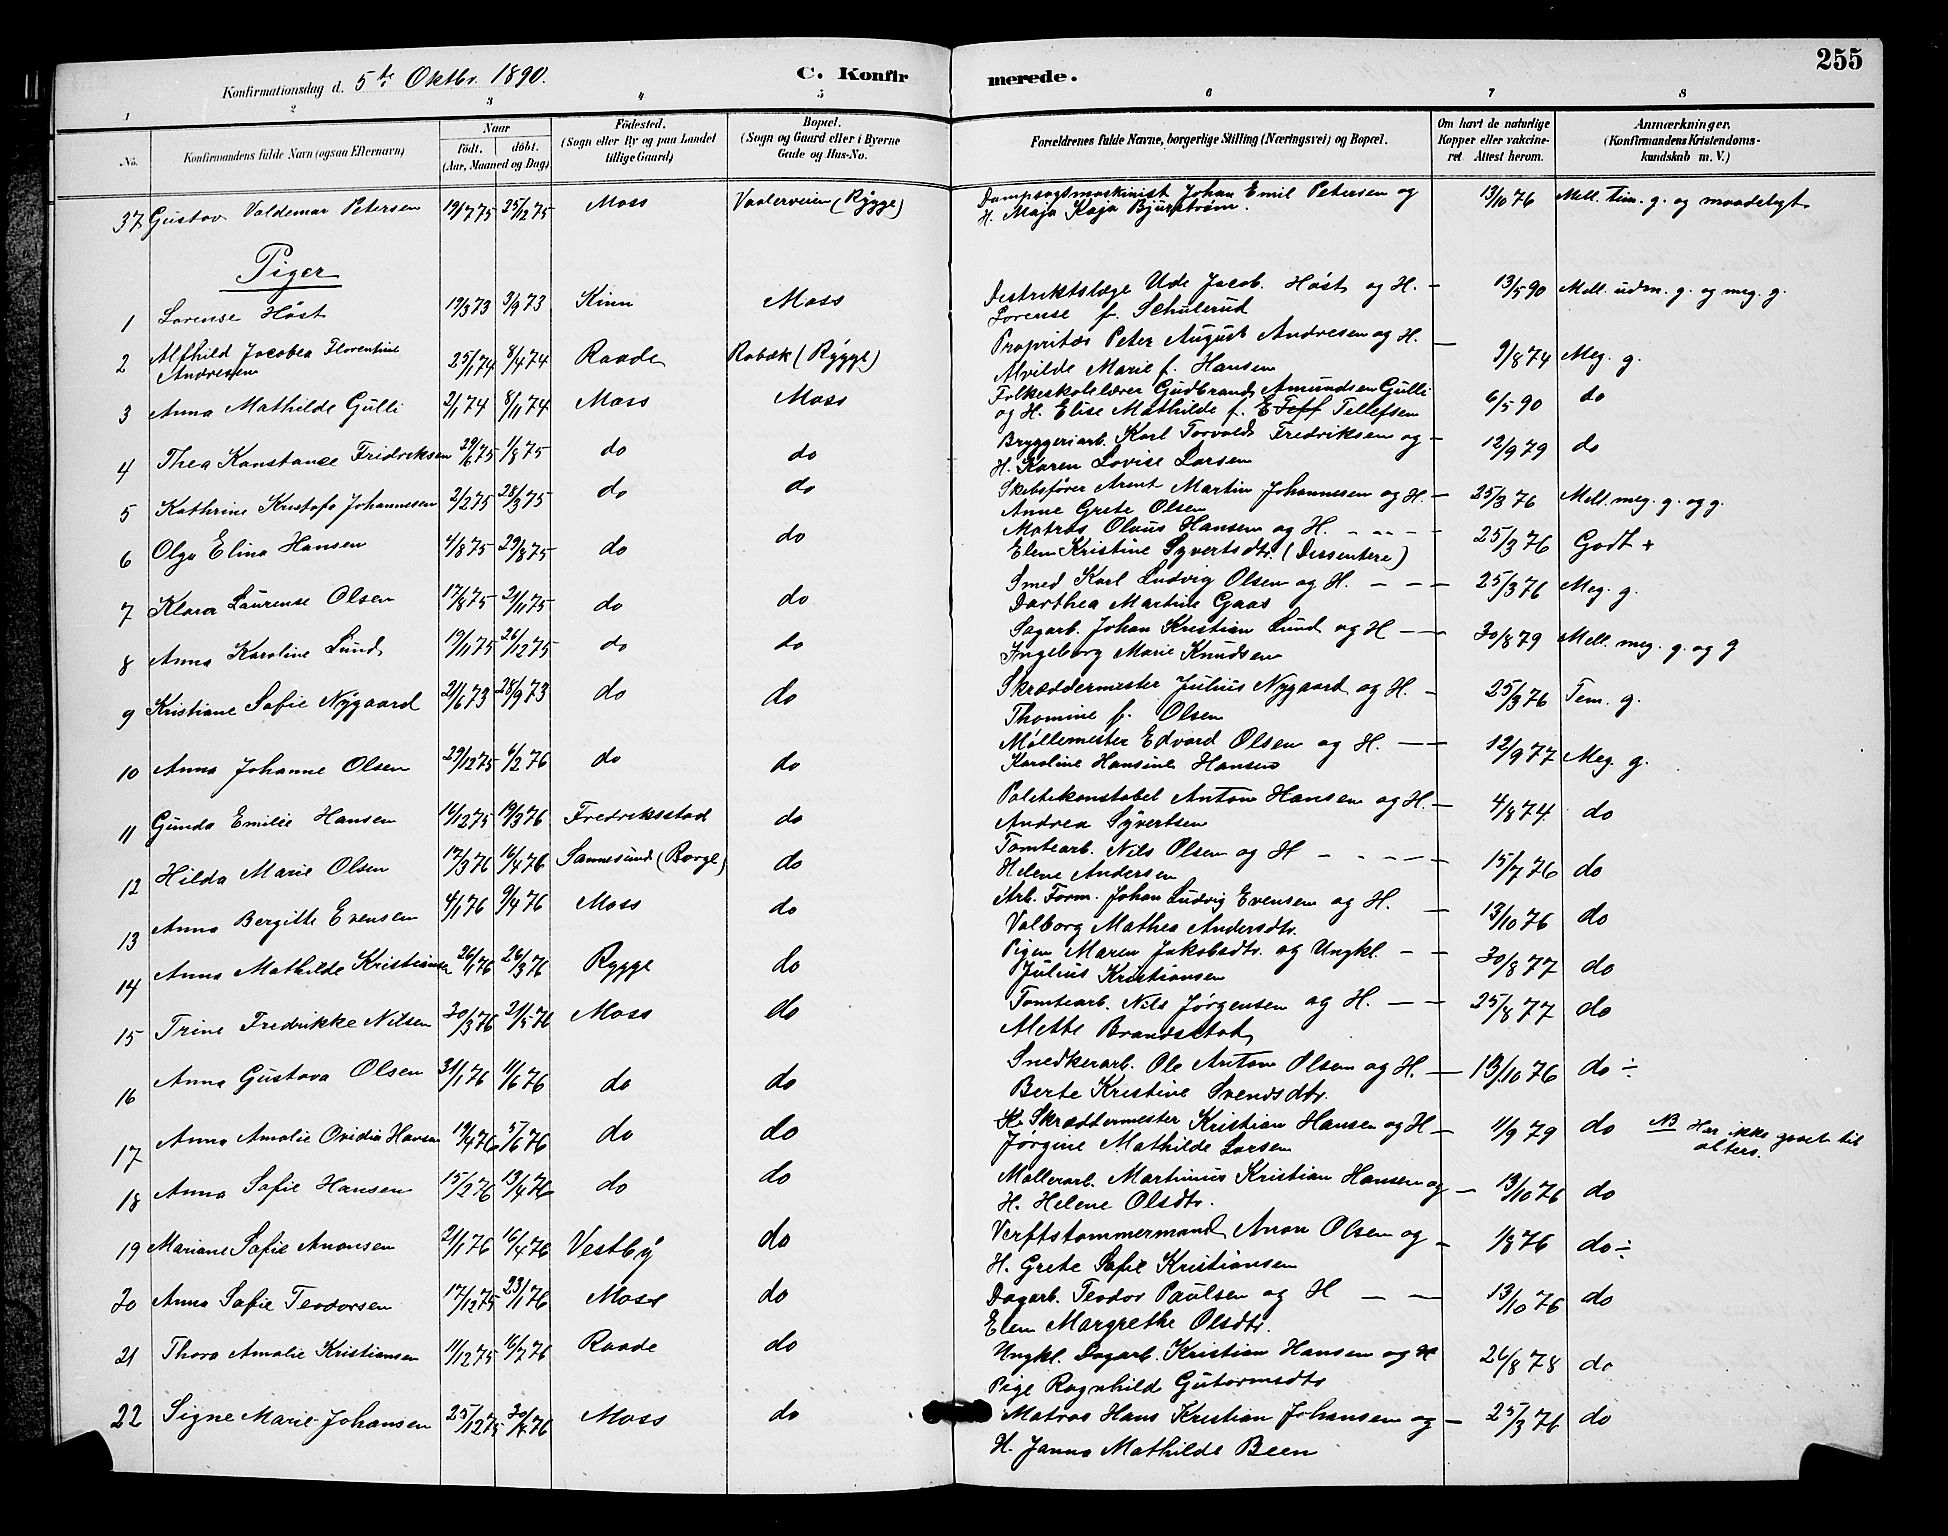 255
Konfirmationsdag d. 5te Oktbr. 1890. C. Konfirmerede.
1 2 3 4 5 6 7 8
No. Konfirmandens fulde Navn (ogsaa Efternavn) Naar født. døbt. (Aar, Maaned og Dag) Fødested. (Sogn eller By og paa Landet tillige Gaard) Bopæl. (Sogn og Gaard eller i Byerne Gade og Hus-No. Forældrenes fulde Navne, borgerlige Stilling (Næringsvei) og Bopæl. Om havt de naturlige Kopper eller vakcineret Attest herom. Anmærkninger. (Konfirmandens Kristendomskundskab m. V.)
37 Gustav Valdemar Petersen 19/7 75 25/12 75 Moss Vaalerveien (Rygge) Dampsagsmaskinist Johan Emil Petersen og 13/10 76 Mell. tem. g. og maadeligt
H. Maja Kaja Bjurstrøm.
Piger
1 Lorense Høst 19/3 73 3/9 73 Kinn Moss Destriktslæge Ude Jacob Høst og H. — 13/5 90 Mell. udm. g. og meg. g.
Lorense f. Schulerud
2 Alfhild Jacobea Florentine 25/1 74 8/4 74 Raade Rabæk (Rygge) Propritær Peter August Andresen og H. — 9/8 74 Meg. g.
Andresen Alvilde Marie f. Hansen
3 Anna Mathilde Gulli 2/1 74 8/11 74 Moss Moss Folkeskolelærer Gudbrand Amundsen Gulli 6/5 90 do
og H. Elise Mathilde f. Tellefsen
4 Thea Konstance Fridriksen 29/6 75 1/8 75 do do Bryggeriarb. Karl Torvald Fredriksen og — 12/9 79 do
H. Karen Lovise Larsen
5 Kathrine Kristofa Johannesen 2/2 75 28/3 75 do do Skibsfører Arent Martin Johannesen og H. — 25/3 76 Mell. meg. g. og g.
Anne Grete Olsen
6 Olga Elina Hansen 4/8 75 29/8 75 do do Matros Olaus Hansen og H. - - - - 25/3 76 Godt +
Elen Kristine Syvertsdtr. (Dissentere)
7 Klara Laurense Olsen 17/8 75 21/11 75 do do Smed Karl Ludvig Olsen og H. — — — 25/3 76 Meg. g.
Darthea Martine Gaas
8 Anna Karoline Lund 19/11 75 26/12 75 do do Sagarb. Johan Kristian Lund og H — — 30/8 79 Mell. meg. g. og g
Ingeborg Marie Knudsen
9 Kristiane Sofie Nygaard 21/6 73 28/9 73 do do Skræddermester Julius Nygaard og H. — 25/3 76 Tem. g.
Thomine f. Olsen
10 Anna Johanne Olsen 29/12 75 6/2 76 do do Møllemester Edvard Olsen og H. — — 12/9 77 Meg. g.
Karoline Hansine Hansen
11 Gunda Emilie Hansen 16/12 75 19/3 76 Fredriksstad do Politikonstabel Anton Hansen og H. — 4/8 74 do
Andrea Syvertsen
12 Hilda Marie Olsen 17/3 76 16/4 76 Sannesund (Borge) do Tomtearb. Nils Olsen og H - - - - - 15/7 76 do
Helene Andersen
13 Anna Bergitte Evensen 4/1 76 9/4 76 Moss do Arb. Form. Johan Ludvig Evensen og H. — 13/10 76 do
Valborg Mathea Andersdtr.
14 Anna Mathilde Kristiansen 26/1 76 26/3 76 Rygge do Pigen Maren Jakobsdtr. og Ungkl. — — 30/8 77 do
Julius Kristiansen
15 Trine Fredrikke Nilsen 30/3 76 21/5 76 Moss do Tomtearb. Nils Jørgensen og H. — — 25/8 77 do
Mette Brandstad
16 Anna Gustava Olsen 31/1 76 11/6 76 do do Snedkerarb. Ole Anton Olsen og H. — 13/10 76 do ÷
Berte Kristine Svendsdtr.
17 Anna Amalie Ovidia Hansen 19/4 76 5/6 76 do do Skræddermester Kristian Hansen og H — 11/9 79 do NB Har ikke gaaet til
Jørgine Mathilde Larsen alters.
18 Anna Sofie Hansen 15/2 76 13/4 76 do do Møllerarb. Martinius Kristian Hansen og — 13/10 76 do
H. Helene Olsdtr.
19 Mariane Sofie Anonsen 21/1 76 16/4 76 Vestby do Verftstømmermand Anon Olsen og — 1/8 76 do ÷
H. Grete Sofie Kristiansen
20 Anna Sofie Teodorsen 17/12 75 23/1 76 Moss do Dagarb. Teodor Paulsen og H — — 13/10 76 do
Elen Margrethe Olsdtr.
21 Thora Amalie Kristiansen 11/12 75 16/7 76 Raade do Ungkl. Dagarb. Kristian Hansen og H 26/8 78 do
Pige Ragnhild Gutormsdtr
22 Signe Marie Johansen 25/12 75 30/4 76 Moss do Matros Hans Kristian Johansen og — 25/3 76 do
H. Janna Mathilde Been